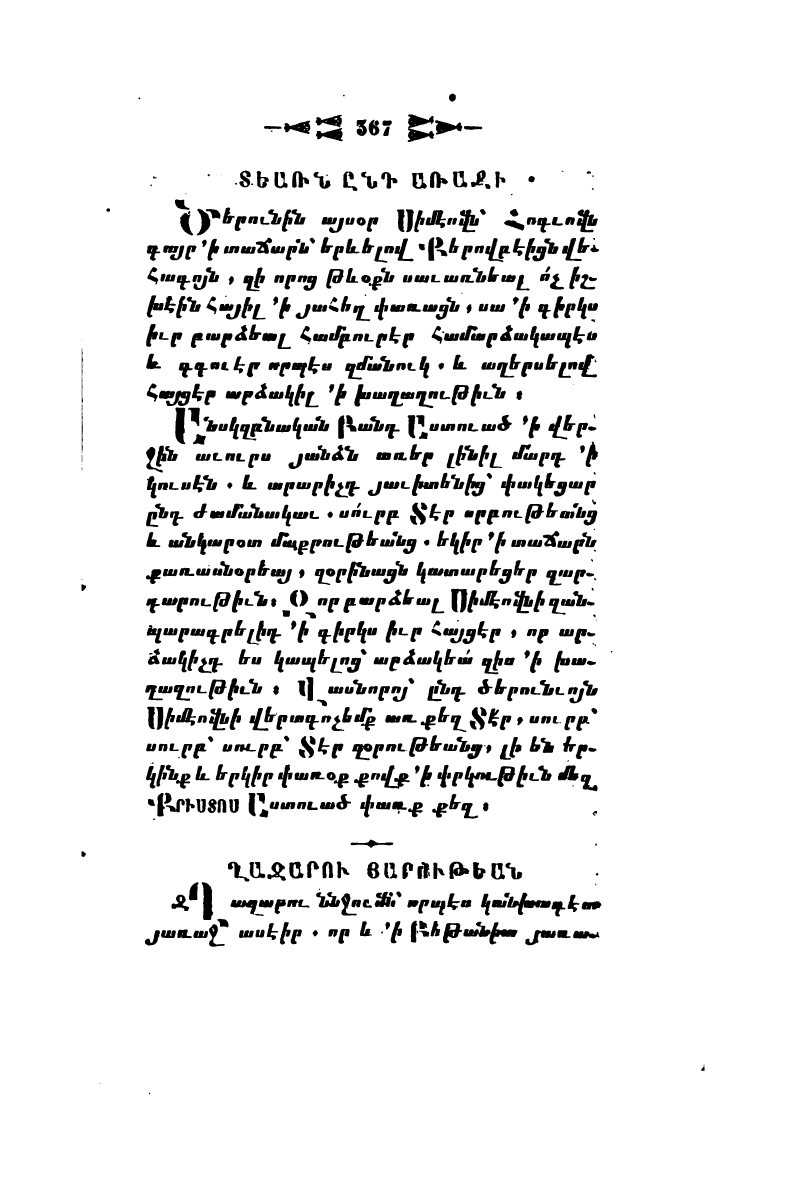 367
ՏԵԱՌՆ ԸՆԴ ԱՌԱՋԻ
Ծերունին այսօր Սիմէովն՝ Հոգւովն
գայր ՚ի տաճարն՝ երևելով Քերովբէիցն վե-
հագոյն, զի որոց թևօքն սաւառնեալ ո՛չ իշ-
խէին հայիլ ՚ի յահեղ փառացն, սա ՚ի գիրկս
իւր բարձեալ համբուրէր համարձակապէս
և գգուէր որպէս զմանուկ. և աղերսելով
հայցէր արձակիլ ՚ի խաղաղութիւն :
Ընսկզբնական Բանդ Աստուած ՚ի վեր-
ջին աւուրս յանձն առեր լինիլ մարդ ՚ի
կուսէն. և արարիչդ յաւիտենից՝ փակեցար
ընդ ժամանակաւ. սո՛ւրբ Տէր սրբութեանց
և անկարօտ մաքրութեանց. եկիր ՚ի տաճարն
քառասնօրեայ, զօրինացն կատարեցեր զար-
դարութիւն: Զ որ բարձեալ Սիմէովնի զան-
պարագրելիդ ՚ի գիրկս իւր հայցէր, որ ար-
ձակիչդ ես կապելոց՝ արձակեա՛ զիս ՚ի խա-
ղաղութիւն : Վասնորոյ՝ ընդ ծերունւոյն
Սիմէովնի վերագոչեմք առ քեզ Տէր, սուրբ՝
սուրբ՝ սուրբ՝ Տէր զօրութեանց, լի են եր-
կինք և երկիր փառօք քովք ՚ի փրկութիւն մեզ
ՔՐԻՍՏՈՍ Աստուած փառք քեզ :
ՂԱԶԱՐՈՒ ՅԱՐՈՒԹԵԱՆ
ԶՂազարու ննջումն՝ որպէս կանխագէտ
յառաջ՝ ասէիր. որ և ՚ի Բեթանիա յառա-